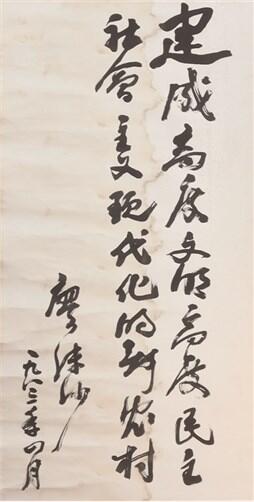 建成高度文明高度民主
社会主义现代化的新农村
廖沫沙
一九八三年四月